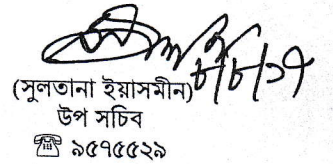 ৮/৮/১৭
(সুলতানা ইয়াসমীন)
উপ সচিব
☎ ৯৫৭৫৫২৯